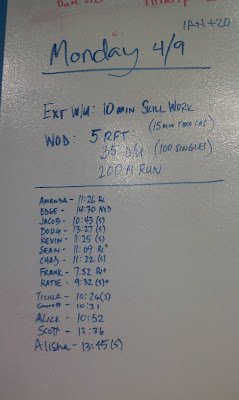 IAN +20
Monday 4/9
EXT W/U: 10 MIN SKILL WORK
WOD: 5 RFT: (15 MIN TIME CAP)
35 D/U (100 SINGLES)
200 M RUN
AMANDA - 11:26 Rx
EDGE - 14:30 MOD
JACOB - 10:43 (S)
DOUG - 13:27 (S)
KEVIN - 11:25 (S)
SEAN - 11:09 Rx
CHAD - 11:22 (S)
FRANK - 7:52 Rx+
KATIE - 9:32 (S)+
TICKLE - 10:26 (S)
Garrett - 10:31
ALICE - 10:52
SCOTT - 12:36
Alisha - 13:45 (S)